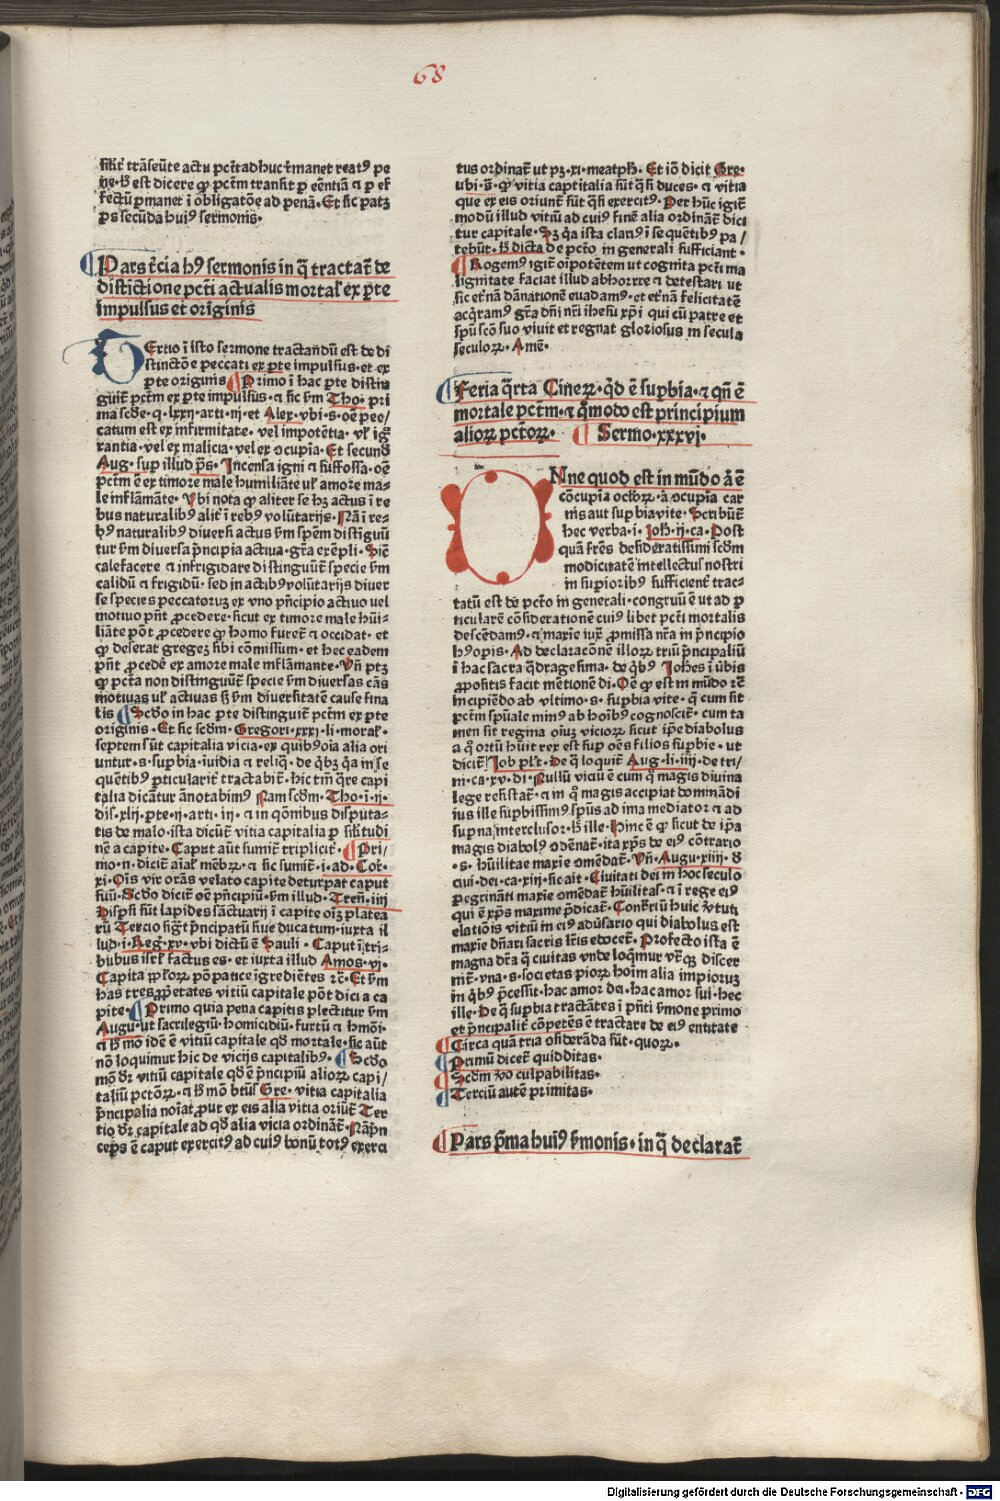 68
ſiĺr̄ trāſeūte actu pctī adhuc r̄manet reatꝰ pe
ne· ꝉr̄ est dicere ꝙ pctm̄ tranſit ꝑ eēntiā ⁊ ꝑ ef
fectū ꝑmanet ī obligatōꝫ ad penā· Et ſic patꝫ
ꝑs ſecūda huiꝰ ſermonis·
Pars t̄cia hꝰ ſermonis in q̄ tractat̄ de
diſtīctione pctī actualis mortal̄ ex ꝑte
impulſus et originis
TErtio ī iſto ſermone tractandū eſt de di
ſtinctōe peccati ex ꝑte impulſus· et ex
ꝑte originis Primo ī hac ꝑte diſtin
guit̄ pctm̄ ex ꝑte impulſus· ⁊ ſic ẜm Tho· pri
ma ſcd̄e· q· lxxij· arti· iij· et Alex· vbi· s· oē pec/
catum eſt ex infirmitate· vel impotētia· vl̄ igno
rantia· vel ex malicia· vel ex ꝯcupīa· Et ſecund
Aug· ſup illud p̄s· Incenſa igni ⁊ ſuffoſſa· oē
pctm̄ ē ex timore male humiliāte ul̄ amore ma=
le inflāmāte· Vbi nota ꝙ aliter ſe hꝫ actus ī re
bus naturalibꝰ alit̄ ī rebꝰ volūtarijs· Nā ī re=
bꝰ naturalibꝰ diuerſi actus ẜm ſpēm diſtīguū
tur ẜm diuerſa pncipia actiua· gr̄a exēpli· Sic̄
calefacere ⁊ infrigidare diſtinguūt̄ ſpecie ẜm
calidū ⁊ frigidū· ſed in actibꝰ volūtarijs diuer
ſe ſpecies peccatoruꝫ ex vno pncipio actiuo uel
motiuo pn̄t ꝓcedere· ſicut ex timore male hūi=
liāte pōt ꝓcedere ꝙ homo furet̄ ⁊ occidat· et
ꝙ deſerat gregeꝫ ſibi cōmiſſum· et hec eadem
pn̄t ꝓcede ex amore male inflāmante· Vn̄ ptꝫ
ꝙ pctā non diſtinguūt̄ ſpecie ẜm diuerſas cās
motiuas ul̄ actiuas ſꝫ ẜm diuerſitatē cauſe fina
lis Scd̄o in hac ꝑte diſtinguit̄ pctm̄ ex ꝑte
originis· Et ſic ſcdm̄· Gregori· xxxj· li· moral̄·
ſeptem ſūt capitalia vicia· ex quibꝰ oīa alia ori
untur· s· ſuperbia· īuidia ⁊ reliq̄· de qꝫbꝫ q̄a in ſe
quētibꝰ ꝑticularit̄ tractabit̄· hic tm̄ q̄re capi
talia dicātur ānotabimꝰ Nam ſcdm̄· Tho· i· ij·
dis· xlij· ꝑte· ij· arti· iij· ⁊ in qōnibus diſputa=
tis de malo· iſta dicūt̄ vitia capitalia ꝑ ſiĺitudi
nē a capite· Caput aūt ſumit̄ tripliciter̄· Pri/
mo· n· dicit̄ aīal̄ mēbꝝ· ⁊ ſic ſumit̄· i· ad· Cor̄·
xi· Oīs vir orās velato capite deturpat caput
ſuū· Scd̄o dicit̄ oē pncipiū· ẜm illud· Tren̄· iiij
Diſpſi ſūt lapides ſāctuarij ī capite oīꝫ platea
rū Tercio ſigt̄ pncipatū ſiue ducatum· iuxta il
lud· i· Reg· xv· vbi dictū ē Sauli · Caput ī tri=
bubus iſrl̄ factus es· et iuxta illud Amos· vj·
Capita ꝓĺoꝝ pōpatice īgrediētes ⁊c̄· Et ẜm
has tres ꝓprietates vitiū capitale pōt dici a ca
pite· Primo quia pena capitis plectitur ẜm
Augu· ut ſacrilegiū· homicidiū· furtū ⁊ hmōi·
⁊ ꝉr̄ mō idē ē vitiū capitale qd̄ mortale· ſic aūt
nō loquimur hic de vicijs capitalibꝰ· Scd̄o
mō dr̄ vitiū capitale qd̄ ē pncipiū alioꝝ capi/
taliū pctōꝝ· ⁊ ꝉr̄ mō btūs Gre· vitia capitalia
pncipalia noīat ꝓut ex eis alia vitia oriūt̄ Ter
tio dr̄ capitale ad qd̄ alia vicia ordināt̄· Nā pn
ceps ē caput exercitꝰ ad cuiꝰ bonū totꝰ exerci
tus ordinat̄ ut pꝫ· xi· meatph̄· Et iō dicit Gre·
ubi· ū· ꝙ vitia captitalia ſūt q̄ſi duces· ⁊ vitia
que ex eis oriunt̄ ſūt q̄ſi exercitꝰ· Per hūc igit̄
modū illud vitiū ad cuiꝰ finē alia ordināt̄ dici
tur capitale· Sꝫ q̄a iſta clariꝰ ī ſequētibꝰ pa/
tebūt· ꝉr̄ dicta de pctō in generali ſufficiant·
Rogemꝰ igit̄ oīpotētem ut cognita pctī ma
lignitate faciat illud abhorre ⁊ deteſtari ut
ſic et̄nā dānationē euadamꝰ· et et̄nā felicitatē
acq̄ramꝰ gr̄a dn̄i nr̄i iheſu xp̄i qui cū patre et
ſpū ſcō ſuo viuit et regnat glorioſus in ſecula
ſeculoꝝ· Amē·
Feria q̄rta Cineꝝ· qd̄ ē ſuꝑbia· ⁊ qn̄ ē
mortale pctm̄· ⁊ q̄modo eſt principium
alioꝝ pctōꝝ· Sermo· xxxvj·
ONne quod eſt in mūdo āt̄ ē
cōcupīa ocĺoꝝ· ā ꝯcupīa car
nis aut ſuꝑbia vite· Scribūt̄
hec verba· i· Joh̄· ij· ca· Poſt
quā fr̄es deſideratiſſimi ſcdm̄
modicitatē intellectus noſtri
in ſuꝑioribꝰ ſufficient̄ trac=
tatū eſt de pctō in generali· congruū ē ut ad ꝑ
ticularē cōſiderationē cuiꝰ libet pctī mortalis
deſcēdamꝰ· ⁊ maxīe iuxꝰ ꝓmiſſa nr̄a in pncipio
hꝰ opis· Ad declaracōnē illoꝝ triū pncipaliū
ī hac ſacra q̄drageſima· de qꝫbꝰ Joh̄es ī ūbis
ꝓpoſitis facit mētionē di· Oē ꝙ eſt in mūdo ⁊c̄
incipiēdo ab vltimo· s· ſuꝑbia vite· q̄ cum ſit
pctm̄ ſpūale minꝰ ab hoībꝰ cognoſcit̄· cum ta
men ſit regina oīuꝫ vicioꝝ ſicut ipſe diabolus
a q̄ ortū hūit rex eſt ſuꝑ oēs filios ſuꝑbie· ut
dicit̄ Job pl̄r· De q̄ loquit̄ Aug· li· iiij· de tri/
ni· ca· xv· di· Nullū viciū ē cum q̄ magis diuina
lege reſiſtat̄· ⁊ in q̄ magis accipiat dominādi
ius ille ſuꝑbiſſimꝰ ſpūs ad ima mediator ⁊ ad
ſuꝑna interclusor· ꝉr̄ ille· hinc ē ꝙ ſicut de ipa
magis diabolꝰ ꝯdēnat̄· ita xp̄s de eiꝰ cōtrario
· s· hūilitae maxīe ꝯmēdat̄· Vn̄· Augu· xiiij· d̄
ciui· dei· ca· xiij· ſic ait· Ciuitati dei in hoc ſeculo
peregrināti maxīe ꝯmēdat̄ hūilitas· ⁊ ī rege eiꝰ
qui ē xp̄s maxime p̄dicat̄· Contr̄iū huic v̄tuti
elatiōis vitiū in eiꝰ aduſario qui diabolus eſt
maxīe dn̄ari ſacris lr̄is edocet̄· Profecto iſta ē
magna dr̄a q̄ ciuitas vnde loqm̄ur vtꝛqꝫ diſcer
nit̄· vna· s· ſocietas pioꝝ hoīm alia impioruꝫ
in qꝫbꝰ p̄ceſſit· hac amor dei· hac amor ſui· hec
ille· De q̄ ſuꝑbia tractātes ī pn̄ti ẜmone primo
et pncipalit̄ cōpetēs ē tractare de eiꝰ entitate
Circa quā tria ꝯſiderāda ſūt· quoꝝ·
Primū dicet̄ quidditas·
Scdm̄ v̄o culpabilitas·
Terciū autē primitas·
Pars p̄ma huiꝰ ẜmonis· in q̄ declarat̄
Digitalisierung gefördert durch die Deutsche Forschungsgemeinschaft - DFG